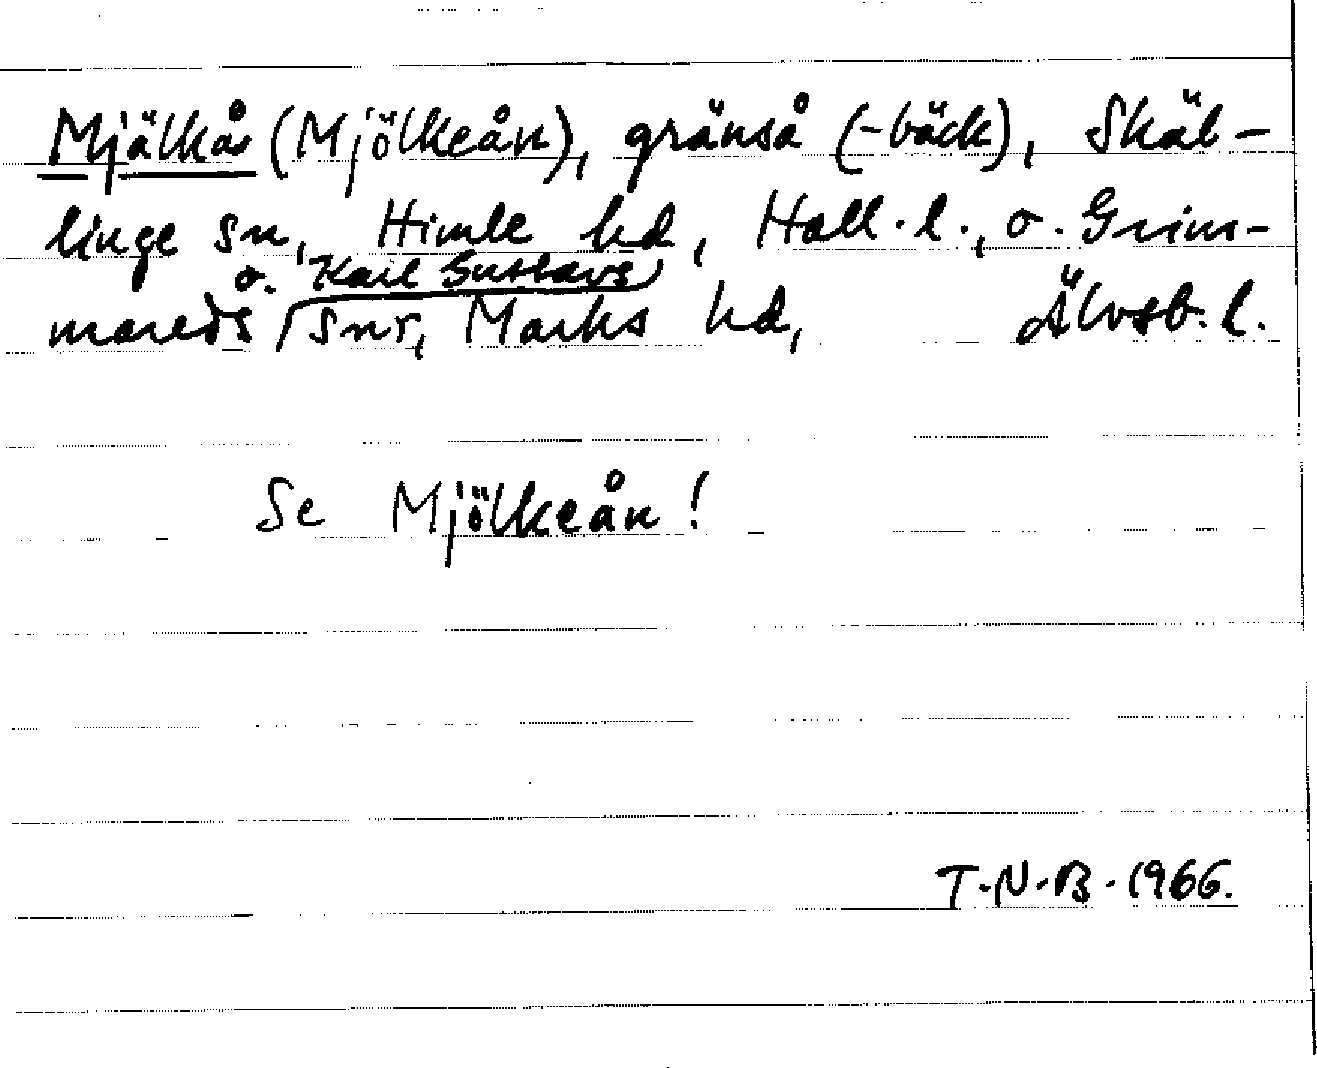 Mjälkå (Mjölkeån), gränså (-bäck), Skäl-
linge sn, Himle hd, Hall. l., o. Grim-
o. Karl Gustavs
mareds snr, Marks hd, Älvsb. l.
Se Mjölkeån!
T.N.B. 1966.